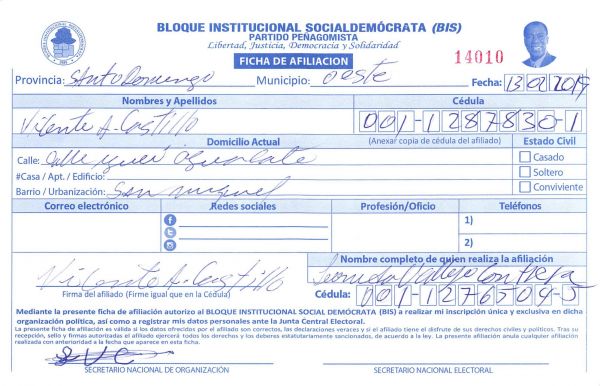 BLOQUE INSTITUCIONAL SOCIALDEMÓCRATA (BIS)
PARTIDO PEÑAGOMISTA
Libertad, Justicia, Democracia y Solidaridad
FICHA DE AFILIACION
14010
Provincia: Santo Domingo Municipio: oeste Fecha: 13 02 2019
Nombres y Apellidos Cédula
Vicente A. Castillo 001-1287830-1
(Anexar copia de cédula del afiliado)
Domicilio Actual Estado Civil
Calle: Calle
Casado
#Casa / Apt. / Edificio:
Soltero
Barrio / Urbanización: San miguel
Conviviente
Correo electrónico Redes sociales Profesión/Oficio Teléfonos
1)
2)
Nombre completo de quien realiza la afiliación
Vicente A. Castillo
Firma del afiliado (Firme igual que en la Cédula)
Cédula: 001-1276504-5
Mediante la presente ficha de afiliación autorizo al BLOQUE INSTITUCIONAL SOCIAL DEMÓCRATA (BIS) a realizar mi inscripción única y exclusiva en dicha
organización política, así como a registrar mis datos personales ante la Junta Central Electoral.
La presente ficha de afiliación es válida si los datos ofrecidos por el afiliado son correctos, las declaraciones veraces y si el afiliado tiene el disfrute de sus derechos civiles y políticos. Tras su
recepción, sello y firmas autorizadas el afiliado ejercerá todos los derechos y los deberes estatutariamente sancionados, de acuerdo a la ley. La presente afiliación anula cualquier afiliación
realizada con anterioridad a la fecha que aparece en esta ficha.
SECRETARIO NACIONAL DE ORGANIZACIÓN SECRETARIO NACIONAL ELECTORAL